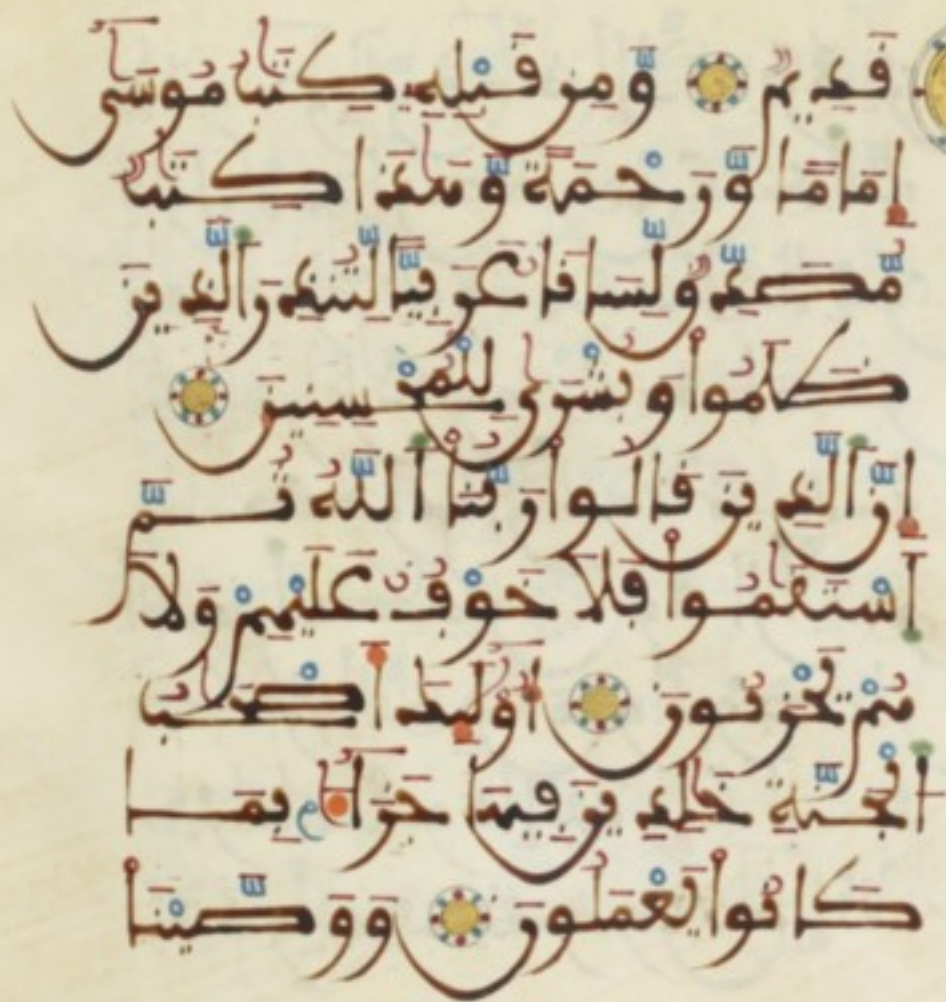 قَدِيمٌ وَّمِن قَبْلِهِۦ كِتَٰبُ مُوسَىٰٓ
إِمَامًا وَّرَحْمَةً وَّهَٰذَا كِتَٰبٌ
مُّصَدِّقٌ لِّسَانًا عَرَبِيًّا لِّتُنذِرَ ٱلَّذِينَ
ظَلَمُوا۟ وَبُشْرَىٰ لِلْمُحْسِنِينَ
إِنَّ ٱلَّذِينَ قَالُوا۟ رَبُّنَا ٱللَّهُ ثُمَّ
ٱسْتَقَٰمُوا۟ فَلَا خَوْفٌ عَلَيْهِمْ وَلَا
هُمْ يَحْزَنُونَ أُو۟لَٰٓئِكَ أَصْحَٰبُ
ٱلْجَنَّةِ خَٰلِدِينَ فِيهَا جَزَآءًۢ بِمَا
كَانُوا۟ يَعْمَلُونَ وَوَصَّيْنَا